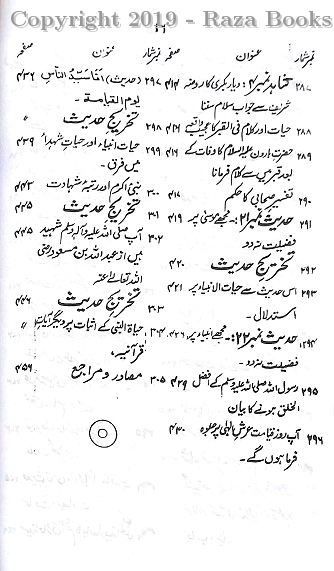 Copyright 2019 - Raza Books
۱۶
نمبر شمار عنوان صفحہ نمبر شمار عنوان صفحہ
۲۸۷ شاہد نمبر ۴: دیار بکری کا روضۂ ۴۱۴
شریف سے جواب سلام سننا
۲۸۸ حیات اور کلام فی القبر کا عجیب واقعہ ۴۱۶
۲۸۹ حضرت ہارون علیہ السلام کا وفات کے ۴۱۶
بعد قبر میں سے کلام فرمانا
۲۹۰ تفسیر صحابی کا حکم ۴۱۷
۲۹۱ حدیث نمبر ۲۱:۔ مجھے موسیٰ پر ۴۱۹
فضیلت نہ دو
۲۹۲ تخریج حدیث ۴۲۰
۲۹۳ اس حدیث سے حیات الانبیاء پر ۴۲۱
استدلال۔
۲۹۴ حدیث نمبر ۲۲:۔ مجھے انبیاء پر ۴۲۶
فضیلت نہ دو۔
۲۹۵ رسول اللہ صلی اللہ علیہ وسلم کے افضل ۴۲۹
الخلق ہونے کا بیان
۲۹۶ آپ روز قیامت عرش الٰہی پر جلوہ ۴۳۰
فرما ہوں گے۔
۲۹۷ (حدیث) انا سید الناس ۴۳۶
یوم القیامۃ۔
۲۹۸ تخریج حدیث
۲۹۹ حیات انبیاء اور حیات شہداء ۴۳۹
میں فرق۔
۳۰۰ نبی اکرم اور رتبۂ شہادت ۴۴۳
۳۰۱ تخریج حدیث ۴۴۵
۳۰۲ آپ صلی اللہ علیہ وآلہ وسلم شہید ۴۴۵
ہیں از عبد اللہ بن مسعود رضی
اللہ تعالیٰ عنہ
۳۰۳ تخریج حدیث ۴۴۶
۳۰۴ حیاۃ النبی کے اثبات پر دیگر آیات
قرآنیہ۔
۳۰۵ مصادر و مراجع ۴۵۶